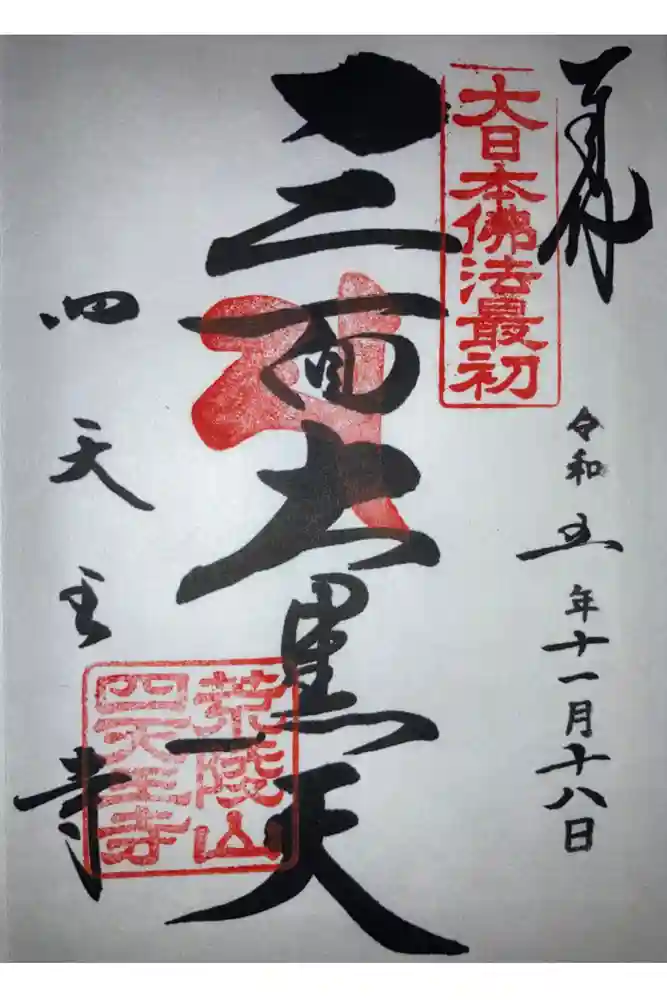 奉拝
令和五年十一月十八日
大日本佛法最初
三面大黒天
四天王寺
荒陵山
四天王寺